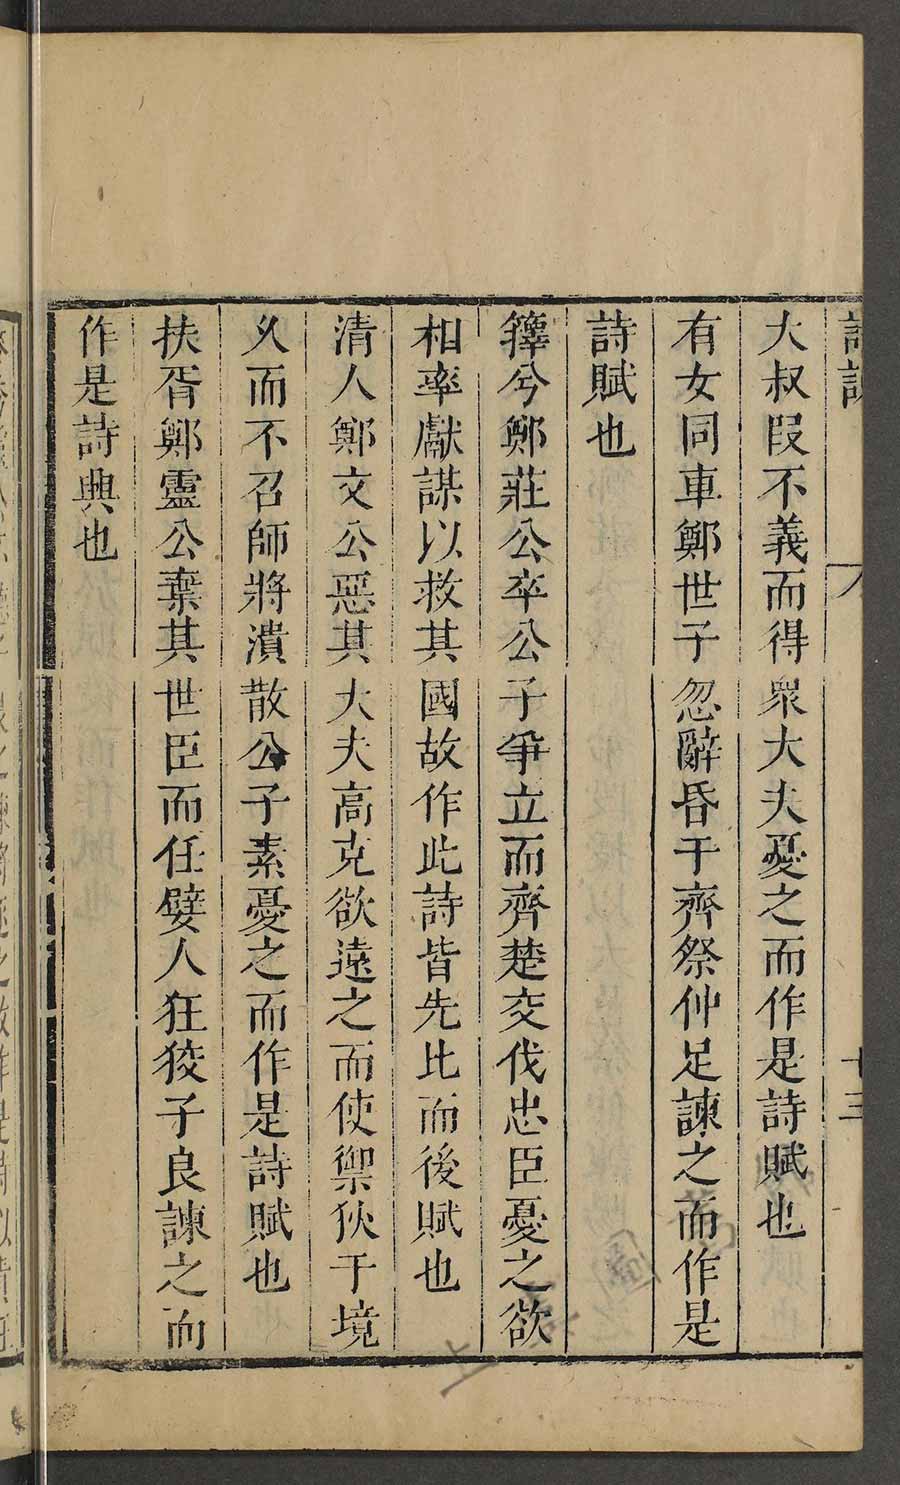 大叔段不義而得衆大夫憂之而作是詩賦也
有女同車鄭世子忽辭昏于齊祭仲足諫之而作是
詩賦也
籜兮鄭莊公卒公子爭立而齊楚交伐忠臣憂之欲
相率獻謀以救其國故作此詩皆先比而後賦也
清人鄭文公惡其大夫高克欲遠之而使禦狄于境
久而不召師將潰散公子素憂之而作是詩賦也
扶胥鄭靈公棄其世臣而任嬖人狂狡子良諫之而
作是詩興也